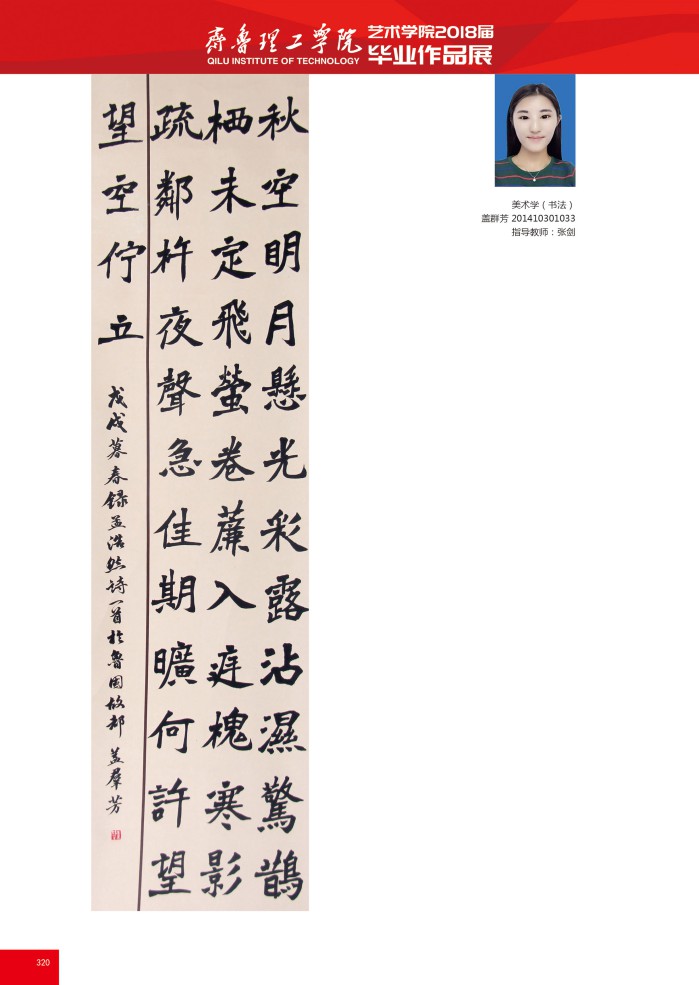 齊魯理工學院
QILU INSTITUTE OF TECHNOLOGY
艺术学院2018届
毕业作品展
美术学（书法）
盖群芳 201410301033
指导教师：张剑
秋空明月懸光彩露沾濕驚鵲
栖未定飛螢卷簾入庭槐寒影
疏鄰杵夜聲急佳期曠何許望
望空佇立
戊戌暮春録孟浩然诗一首於魯国故都 盖羣芳
320